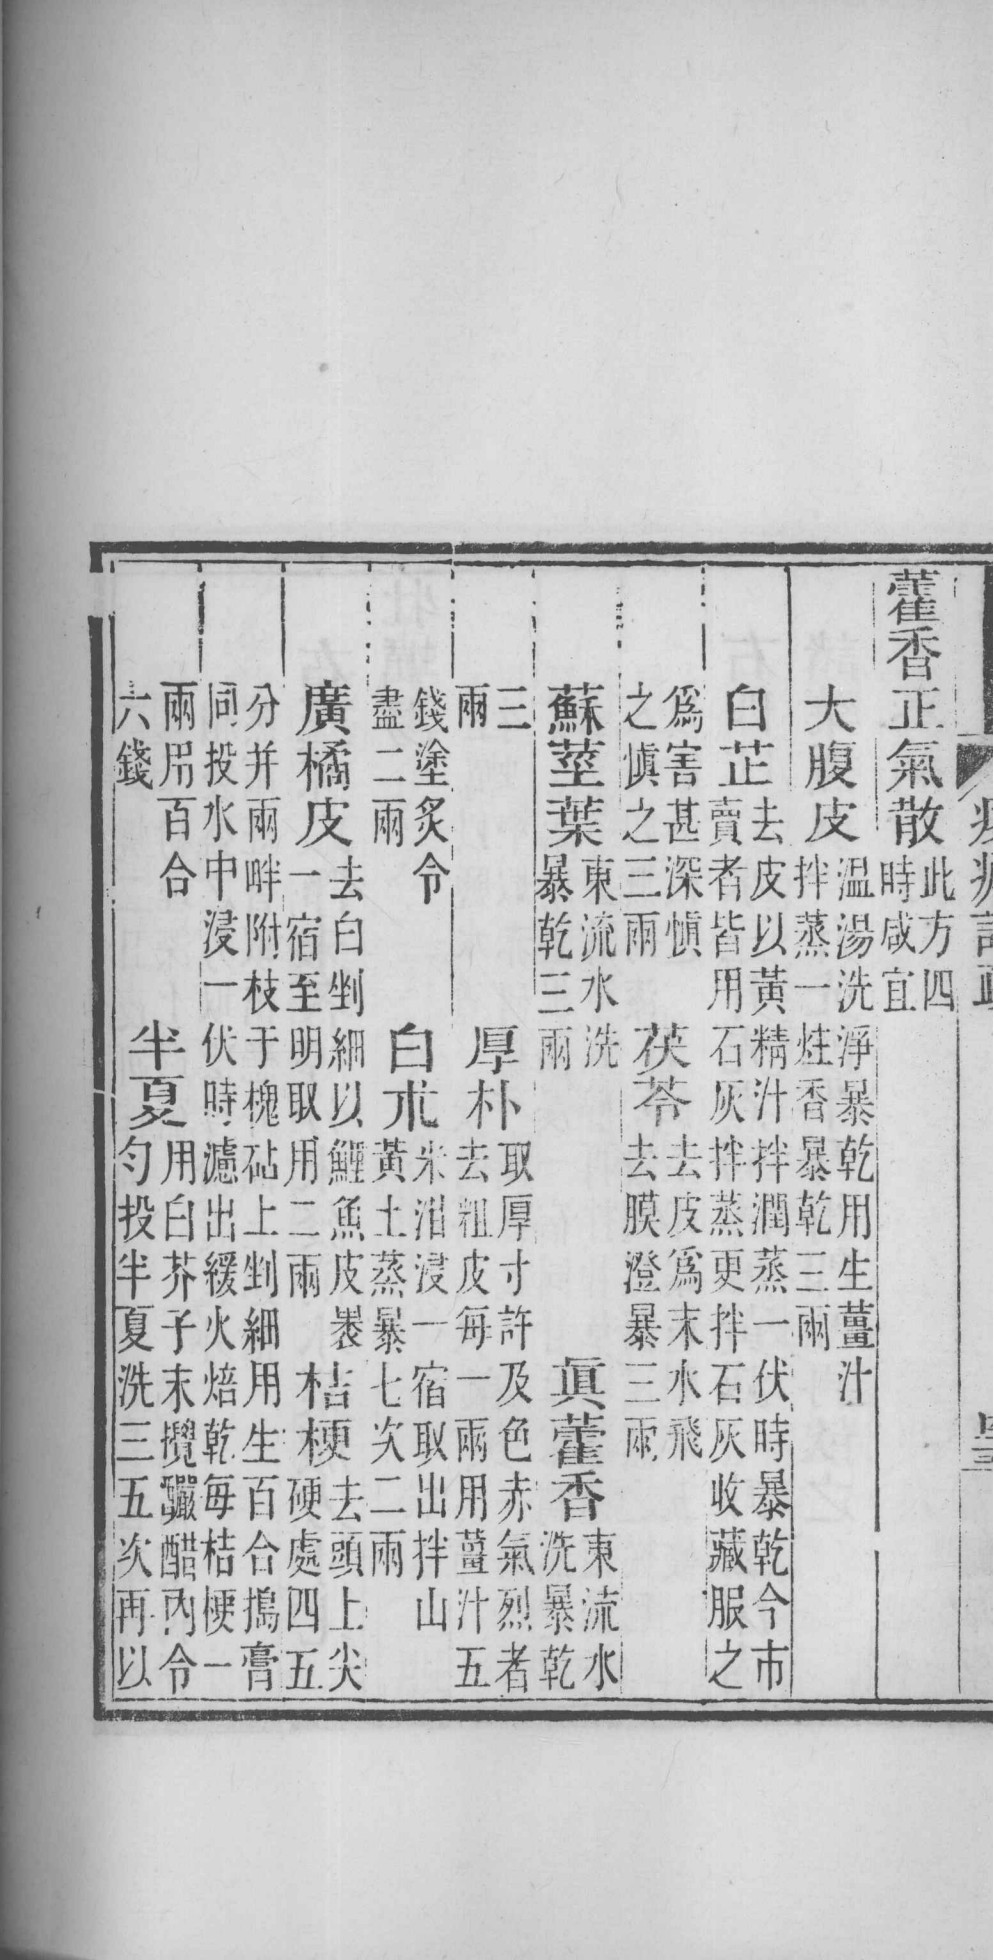 痎瘧論疏
藿香正氣散
此方四
時咸宜
大腹皮
温湯洗淨暴乾用生薑汁
拌蒸一炷香暴乾三兩
白芷
去皮以黃精汁拌潤蒸一伏時暴乾今市
賣者皆用石灰拌蒸更拌石灰收藏服之
爲害甚深愼
之愼之三兩
茯苓
去皮爲末水飛
去膜澄暴三兩
蘇莖葉
東流水洗
暴乾三兩
眞藿香
東流水
洗暴乾
三
兩
厚朴
取厚寸許及色赤氣烈者
去粗皮每一兩用薑汁五
錢塗炙令
盡二兩
白朮
米泔浸一宿取出拌山
黃土蒸暴七次二兩
廣橘皮
去白剉細以鯉魚皮裹
一宿至明取用二兩
桔梗
去頭上尖
硬處四五
分并兩畔附枝于槐砧上剉細用生百合搗膏
同投水中浸一伏時濾出緩火焙乾每桔梗一
兩用百合
六錢
半夏
用白芥子末攪釅醋內令
勻投半夏洗三五次再以